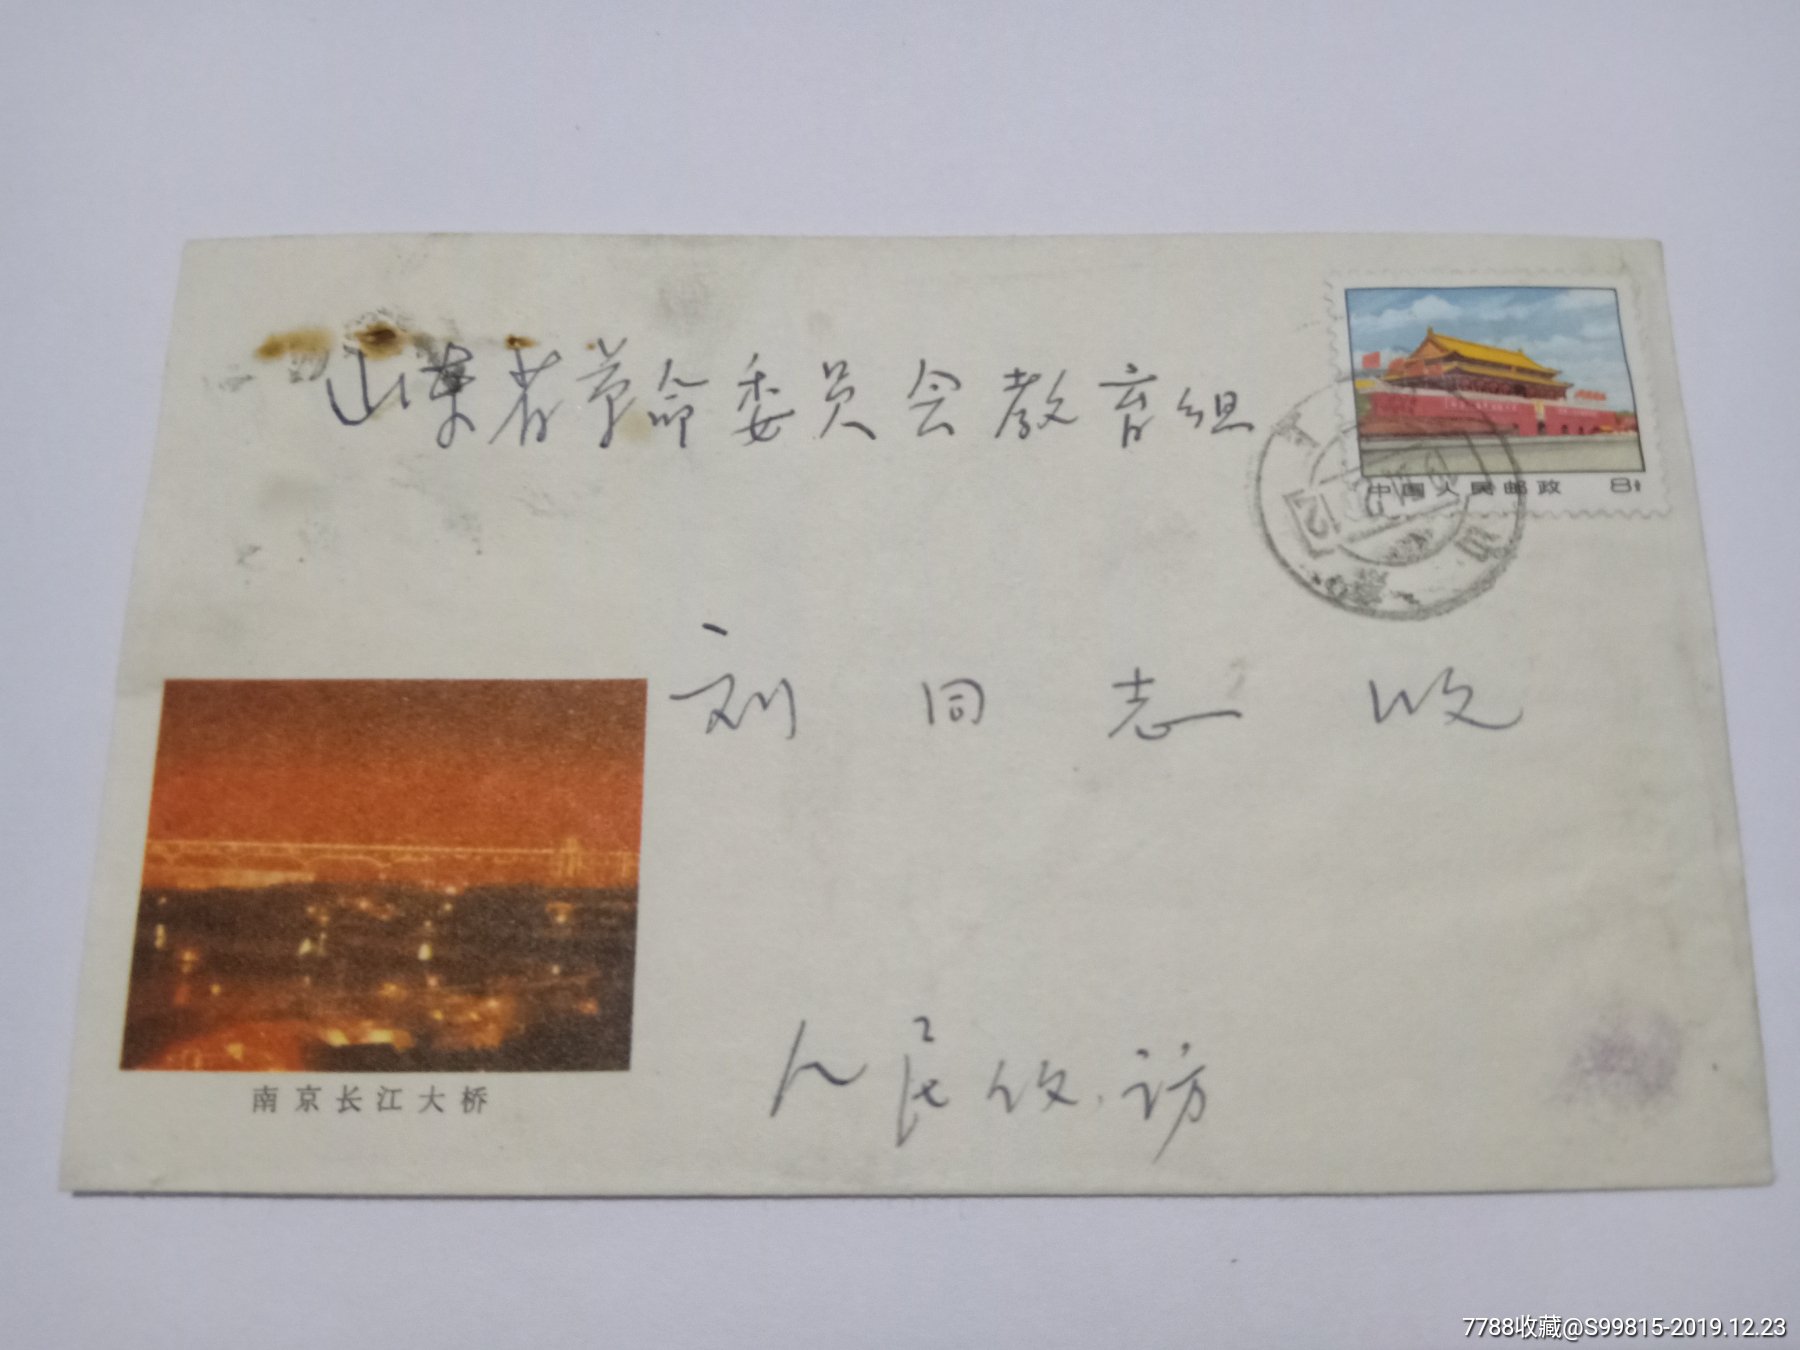 山东省革命委员会教育组
中国人民邮政 8分
刘同志收
南京长江大桥
人民收访
7788收藏@S99815-2019.12.23